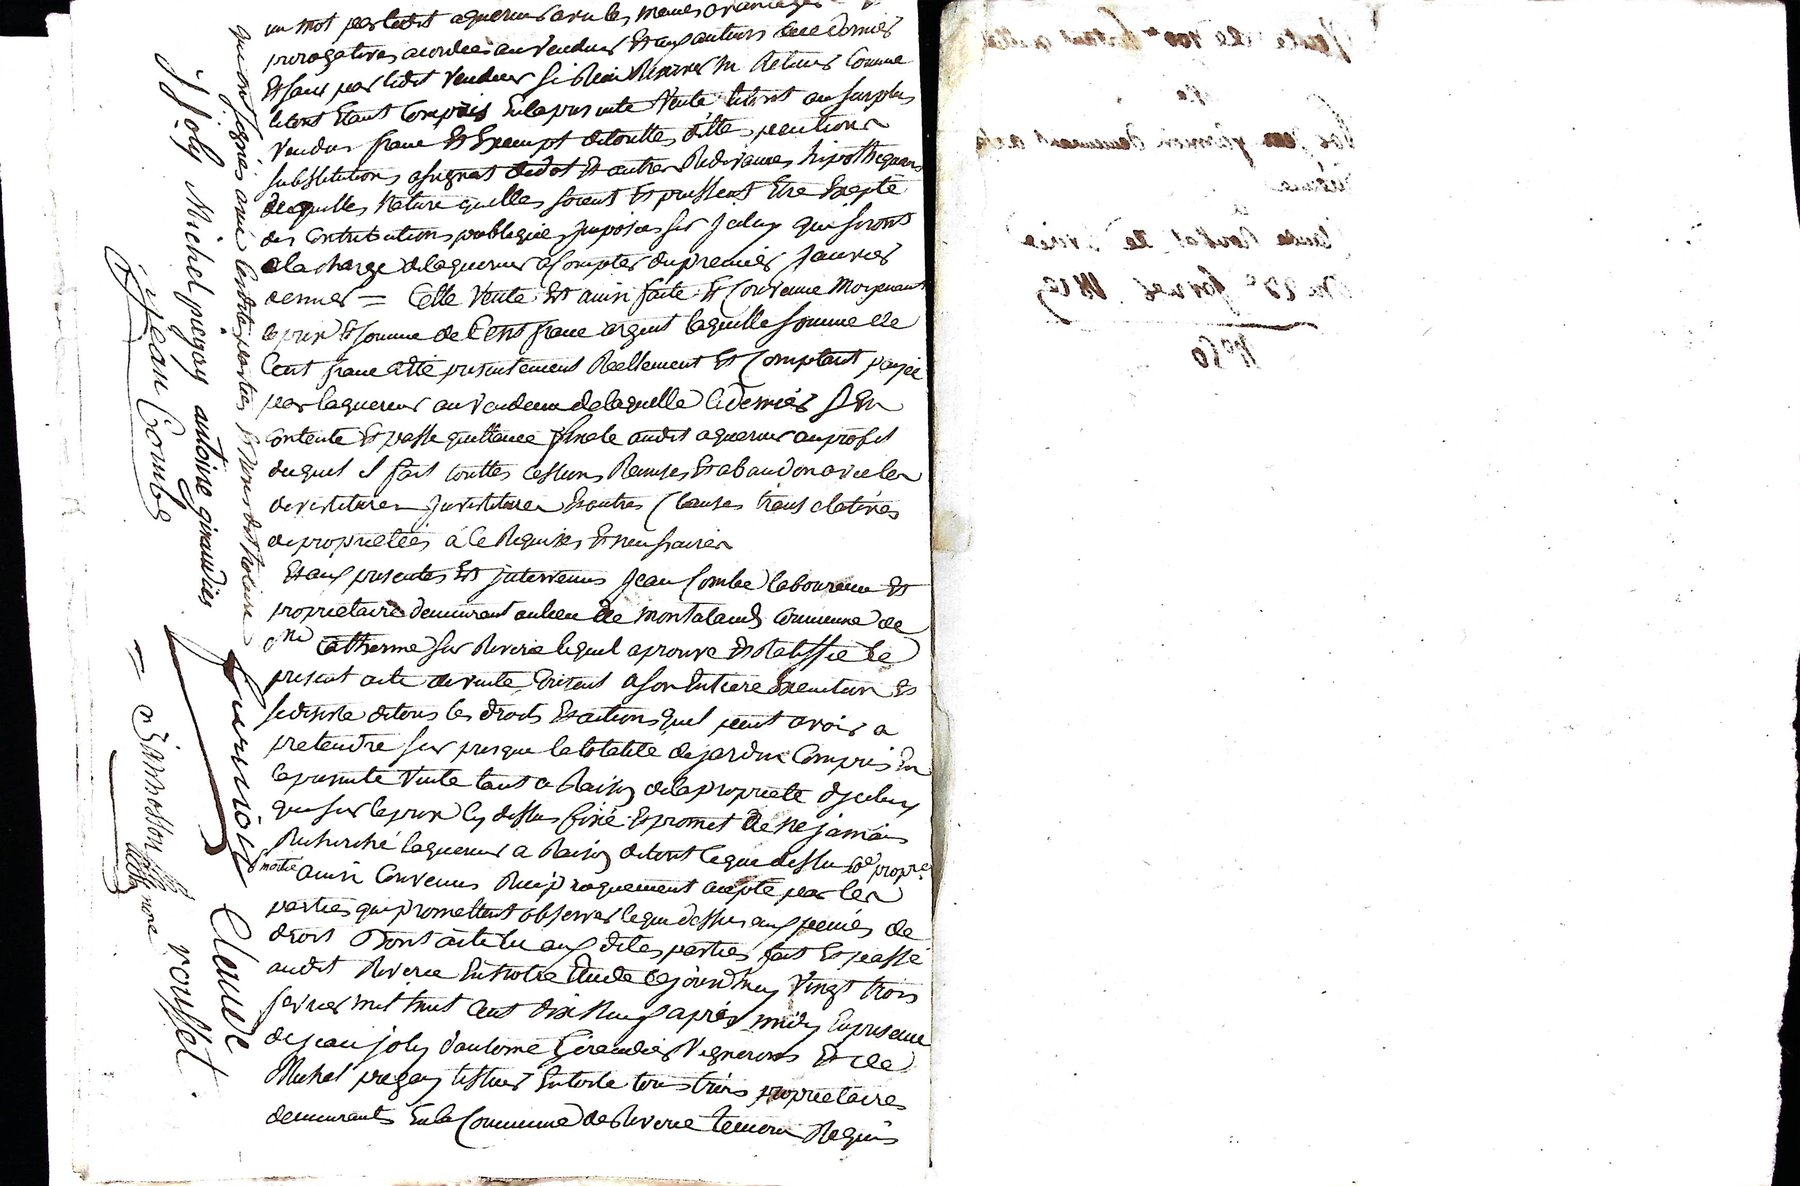 un mot par ledit aquereur avec les memes avantages et
prerogatives acordées au vendeur et aux auteurs de ce dernier
Et sans par ledit vendeur si rien reserver ni retenir Comme
letout Etant Compris En la presente Vente letout au surplus
Vendu franc Et Exempt detouttes dettes, pentions
substitutions assignat dedot Et autres Redevances hipothequaires
dequelles Nature quelles soient Et puissent Etre Excepté
des Contributions publiques Imposées sur Jceluy qui seront
alacharge delaquereur acompter dupremier Janvier
dernier = Cette Vente Est ainsi faite Et Convenue Moyenant
leprix Et somme de Cent franc argent laquelle somme de
Cent franc a Eté presentement Reellement Et Comptant payée
par laquereur au Vendeur delaquelle cedernier S'En
Contente Et passe quittance finale audit aquereur au profit
duquel il fait touttes cessions Remises Et abandon avec les
devestitures Jnvestitures Et autres Clauses translatives
depropriétées à ce Requises Et necessaires
Et aux presentes Est Jntervenu Jean Combe laboureur Et
proprietaire demeurant aulieu de montaland Commune de
Ste Catherine sur Riverie lequel aprouve Et Ratiffie le
present acte devente Consent a son Entiere Execution Et
sedesiste detous les droits Et actions quil peut avoir a
pretendre sur presque latotalité dejardin Compris En
lapresente Vente tant a Raison delapropriété djceluy
que sur leprix Cy dessus fixé Et promet de Ne jamais
Recherché laquereur a Raison detout ceque dessus
ainsi Convenus Reciproquement acepté par les
parties qui promettent observer leque dessus aux peines de
droit Dont acte lu aux dites parties fait Et passé
audit Riverie En Notre Etude cejourd'huy Vingt trois
fevrier mil huit Cent dix Neuf après midy En presence
de jean joly d'antoine Giraudier Vignerons Et de
Michel pragay tissier En toile tous trois proprietaires
demeurants En la Commune de Riverie temoins Requis
qui ont signés avec lesdites parties Et Nous dit Notaire
j Joly Michel pragay antoine giraudier
jean Combe
furnion Claude
rousset
Vente de 100f
Par jean
Claude
Du 23e fevrier 1819
No 60